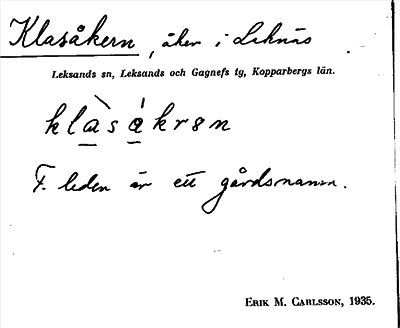 Klasåkern, åker i Leknäs
Leksands sn, Leksands och Gagnefs tg, Kopparbergs län.
klàsákrən
F. leden är ett gårdsnamn.
ERIK M. CARLSSON, 1935.